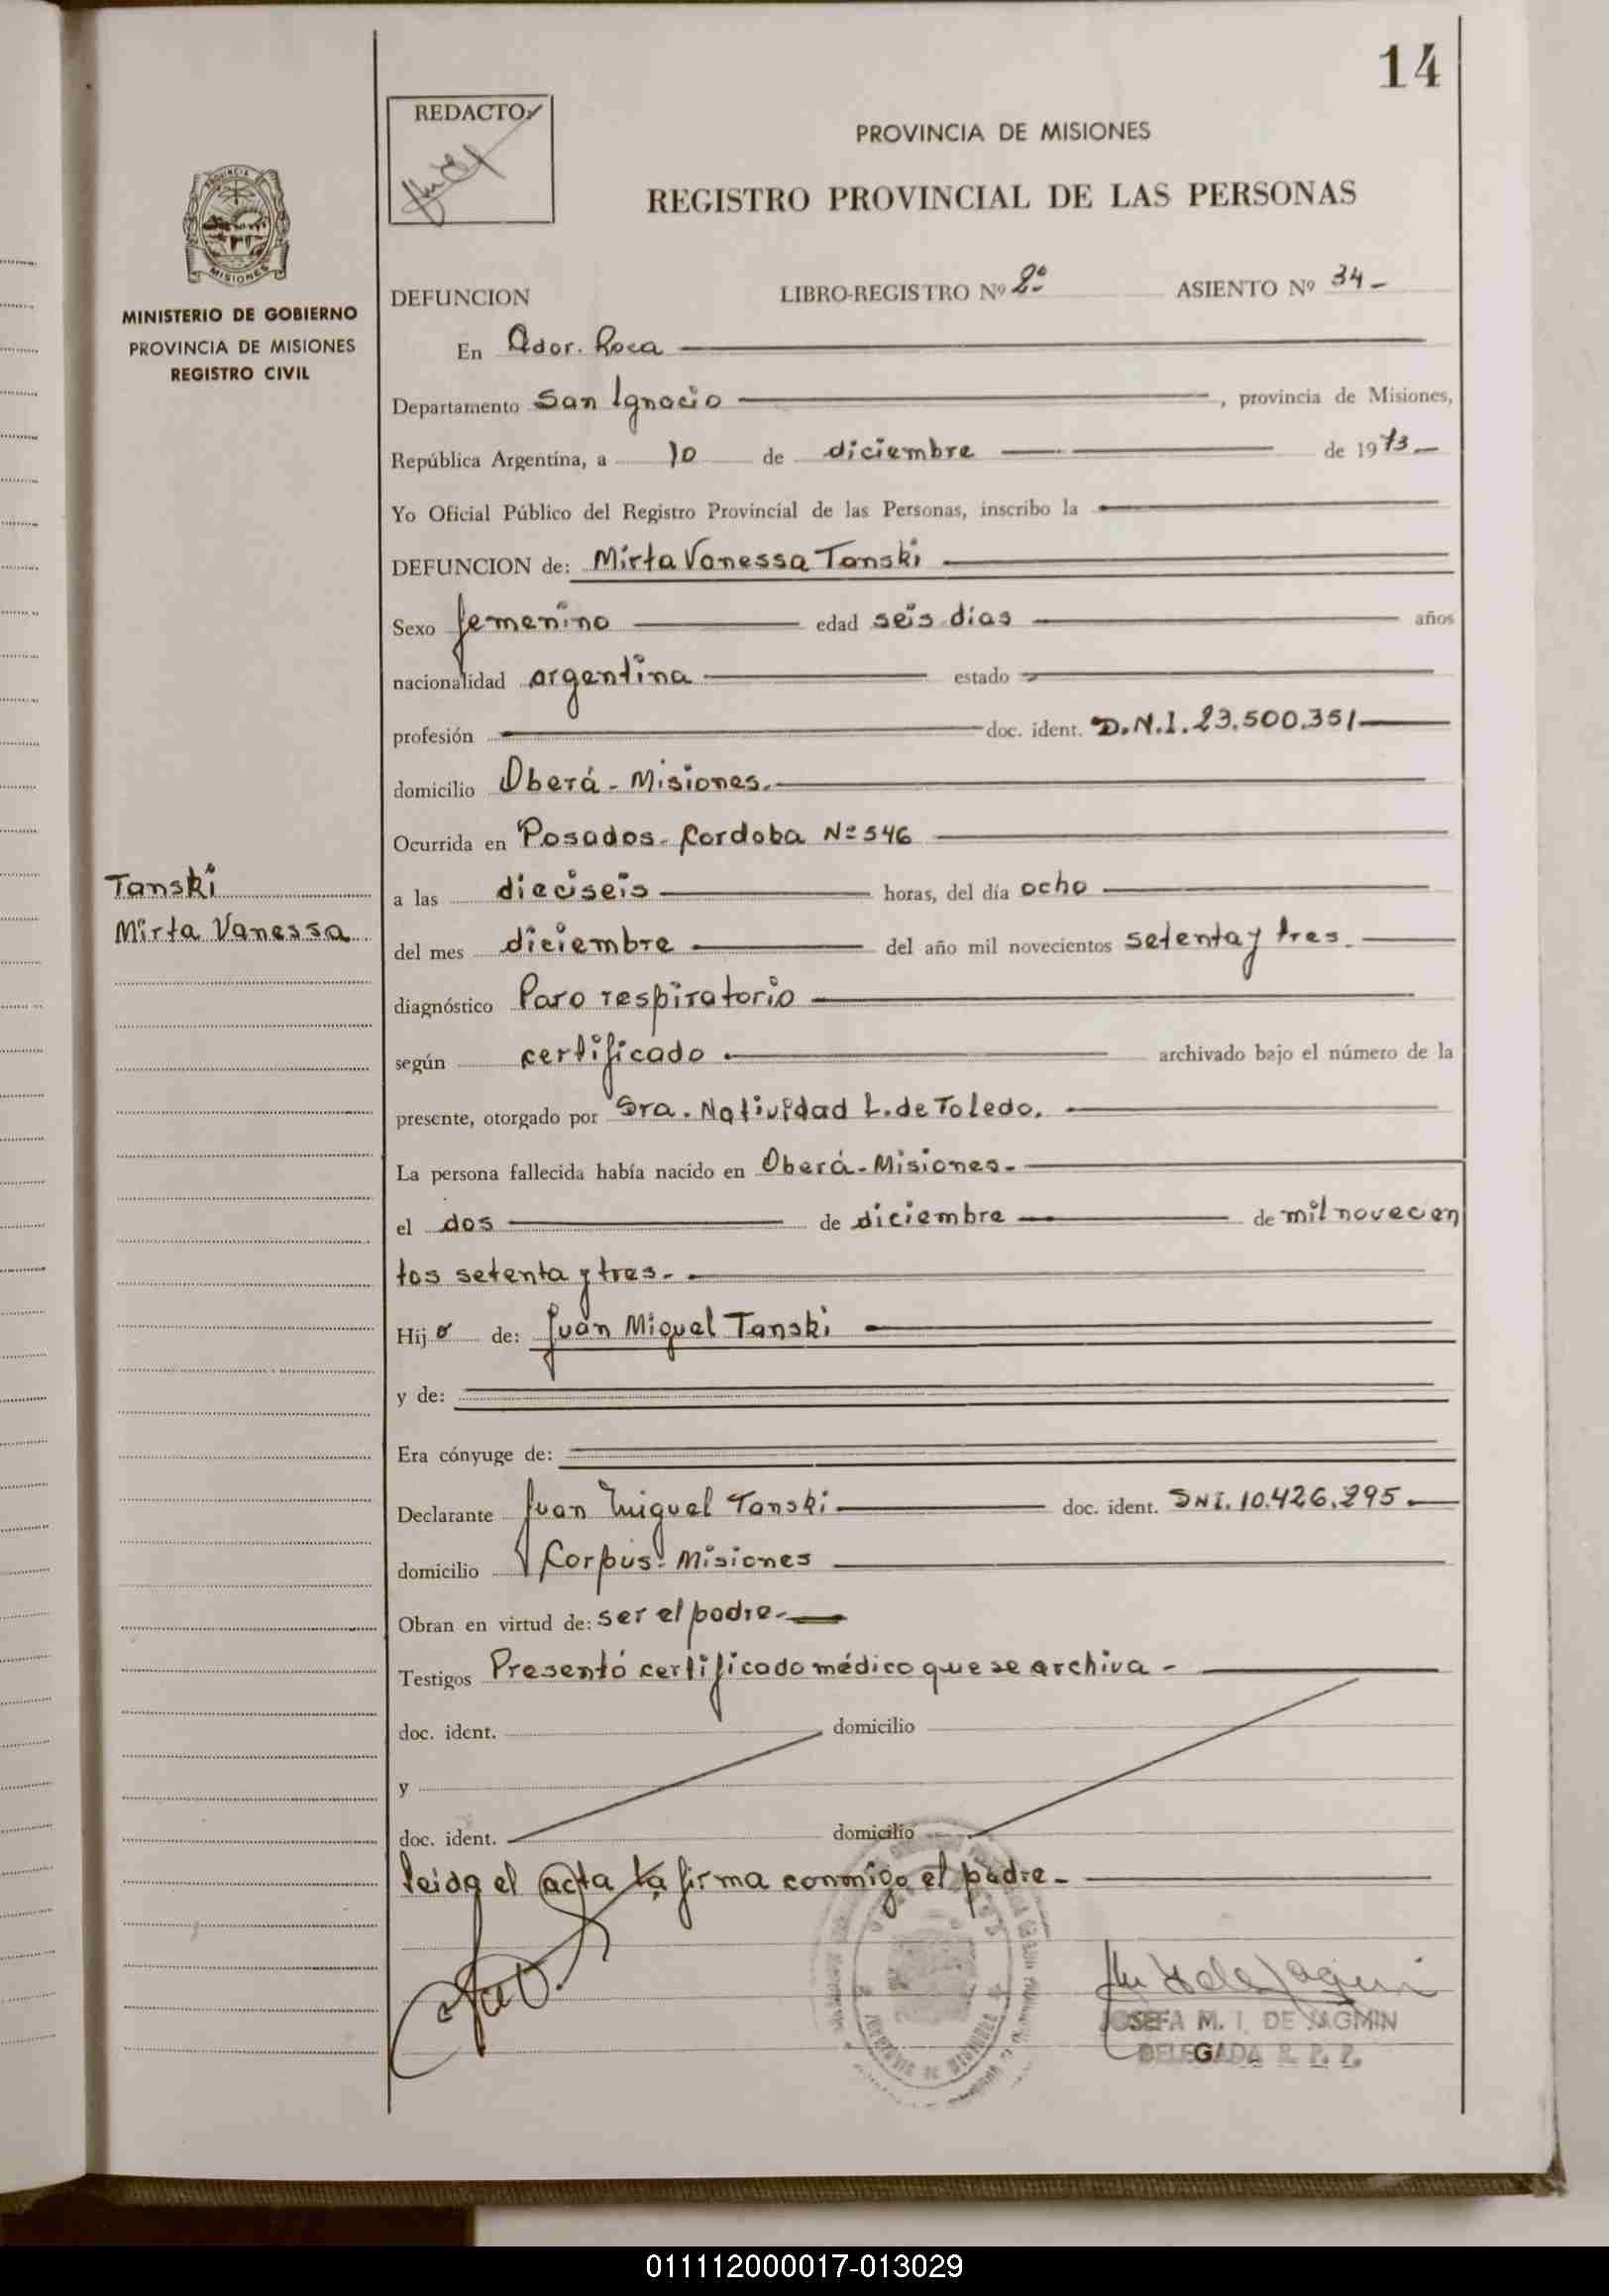 14
REDACTOR
PROVINCIA DE MISIONES
REGISTRO PROVINCIAL DE LAS PERSONAS
MISIONES
MINISTERIO DE GOBIERNO
PROVINCIA DE MISIONES
REGISTRO CIVIL
DEFUNCION LIBRO-REGISTRO Nº 2º ASIENTO Nº 34-
En Gdor. Roca
Departamento San Ignacio , provincia de Misiones,
República Argentina, a 10 de diciembre de 1973-
Yo Oficial Público del Registro Provincial de las Personas, inscribo la
DEFUNCION de: Mirta Vanessa Tanski
Sexo femenino edad seis dias años
nacionalidad argentina estado
profesión doc. ident. D.N.I. 23.500.351
domicilio Oberá - Misiones.
Ocurrida en Posadas - Cordoba Nº 546
Tanski
Mirta Vanessa
a las dieciseis horas, del día ocho
del mes diciembre del año mil novecientos setenta y tres.
diagnóstico Paro respiratorio
según certificado archivado bajo el número de la
presente, otorgado por Dra. Natividad L. de Toledo.
La persona fallecida había nacido en Oberá - Misiones -
el dos de diciembre de mil novecen
tos setenta y tres.-
Hij a de: Juan Miguel Tanski
y de:
Era cónyuge de:
Declarante Juan Miguel Tanski doc. ident. DNI. 10.426.295.
domicilio Corpus - Misiones
Obran en virtud de: ser el padre.-
Testigos Presentó certificado médico que se archiva -
doc. ident. domicilio
y
doc. ident. domicilio
leida el acta la firma conmigo el padre -
JOSEFA M. I. DE YAGMIN
DELEGADA R. P. P.
011112000017-013029